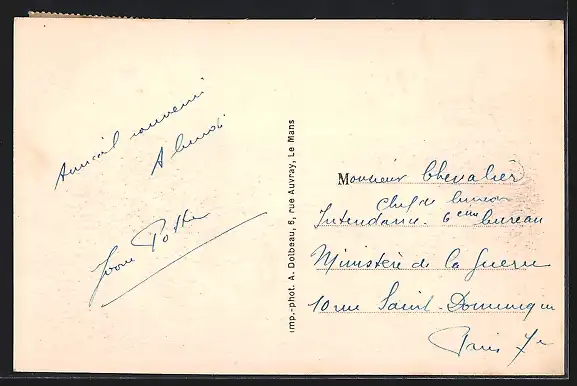 Amical souvenir
Yvonne
imp.-phot. A. Dolbeau, 6, rue Auvray, Le Mans
Monsieur Chevalier
Chef de bureau
Intendance. 6eme bureau
Ministère de la Guerre
10 rue Saint-Dominique
Paris 7e